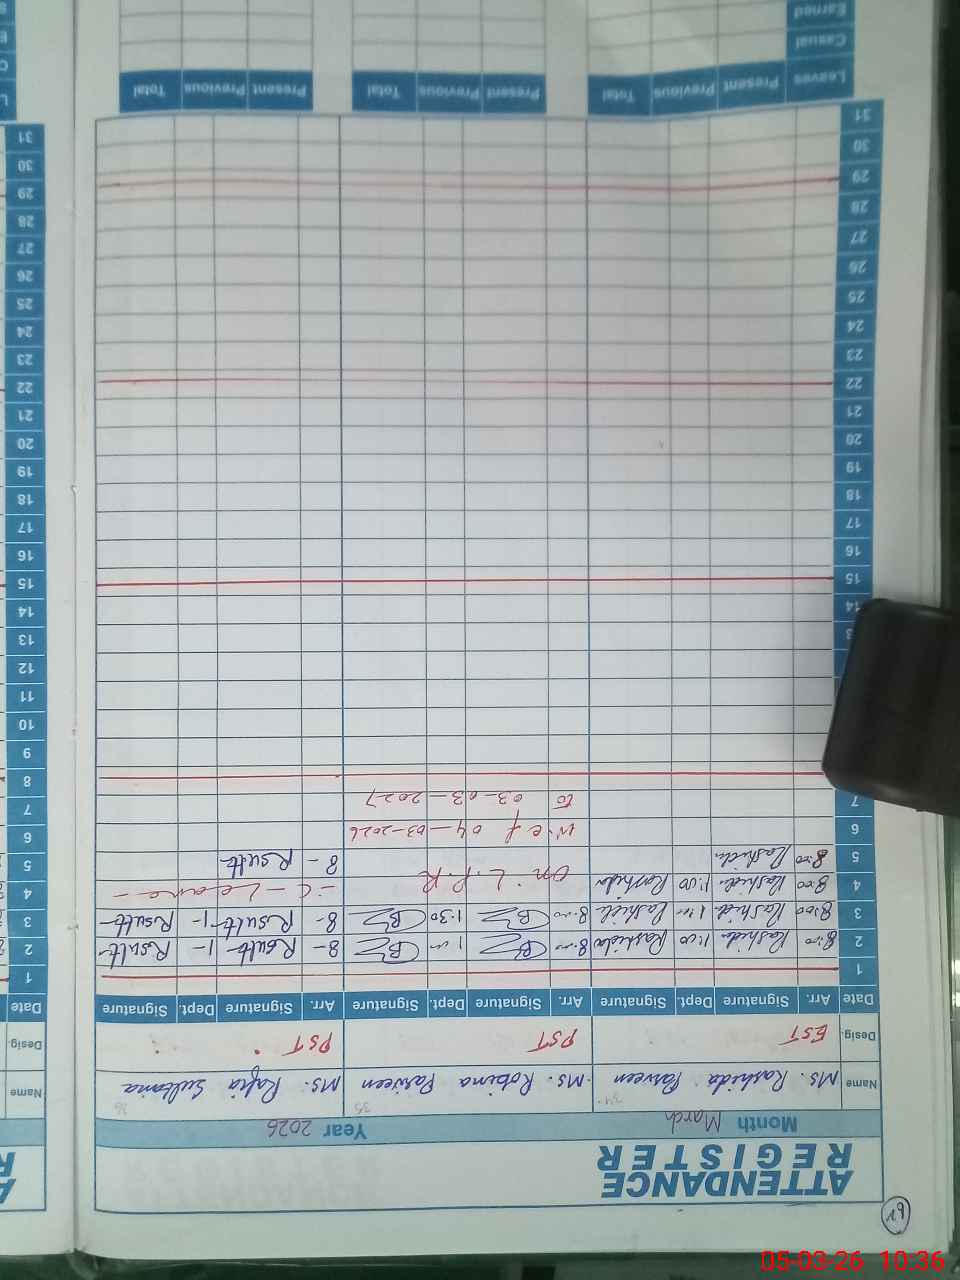 ATTENDANCE
REGISTER
Month March Year 2026
Name Ms. Rashida Parveen Ms. Robina Parveen Ms. Rafia Sultana
34 35 36
Desig. EST PST PST
Date Arr. Signature Dept. Signature Arr. Signature Dept. Signature Arr. Signature Dept. Signature
1
2 8:00 Rashida 1:00 Rashida 8:00 1:00 8- Rsult 1- Rsult
3 8:00 Rashida 1:00 Rashida 8:00 1:30 8- Rsult 1- Rsult
4 8:00 Rashida 1:00 Rashida on L.P.R - C - Leave -
5 8:00 Rashida 8- Rsult
6 w.e.f 04-03-2026
7 to 03-03-2027
15
16
17
18
19
20
21
22
23
24
25
26
27
28
29
30
31
Leaves Present Previous Total Present Previous Total Present Previous Total
Casual
Earned
Name
Desig.
Date
1
2
3
4
5
6
7
8
9
10
11
12
13
14
15
16
17
18
19
20
21
22
23
24
25
26
27
28
29
30
31
05-03-26 10:36